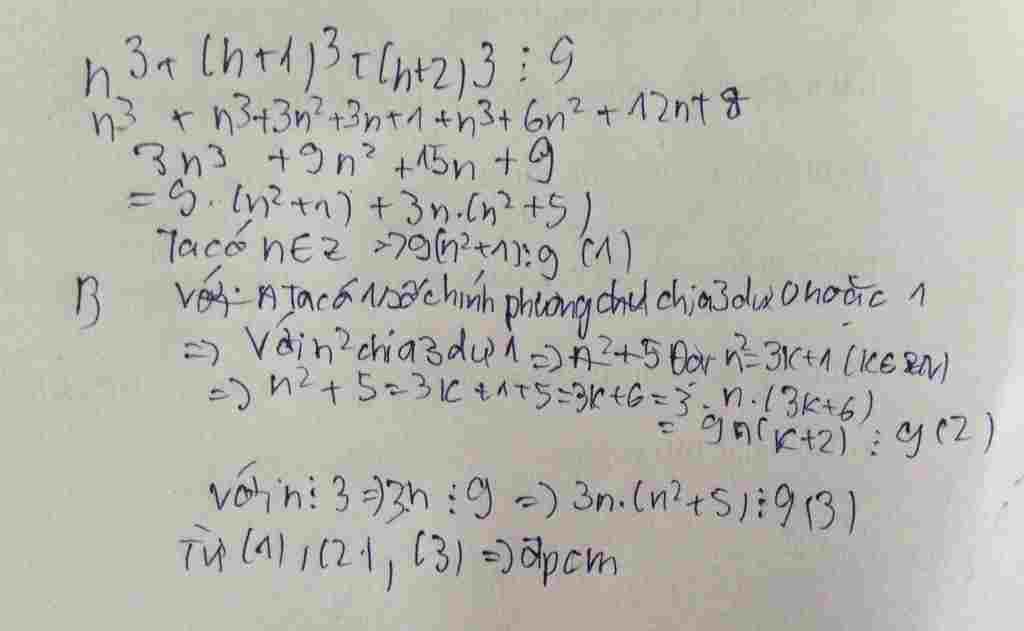 n³ + (n+1)³ + (n+2)³ ⋮ 9
n³ + n³+3n²+3n+1+n³+6n²+12n+8
3n³ +9n² +15n + 9
= 9.(n²+1) + 3n.(n²+5)
Ta có n∈Z =>9(n²+1)⋮9 (1)
Với Ta có 1 số chính phương chia 3 dư 0 hoặc 1
=> Với n² chia 3 dư 1 => n²+5 Đặt n²=3k+1 (k∈N)
=> n²+5=3k+1+5=3k+6=3.n.(3k+6)
= 9n(k+2) ⋮ 9(2)
Với n⋮3=>3n⋮9 => 3n.(n²+5)⋮9(3)
Từ (1),(2), (3) => đpcm